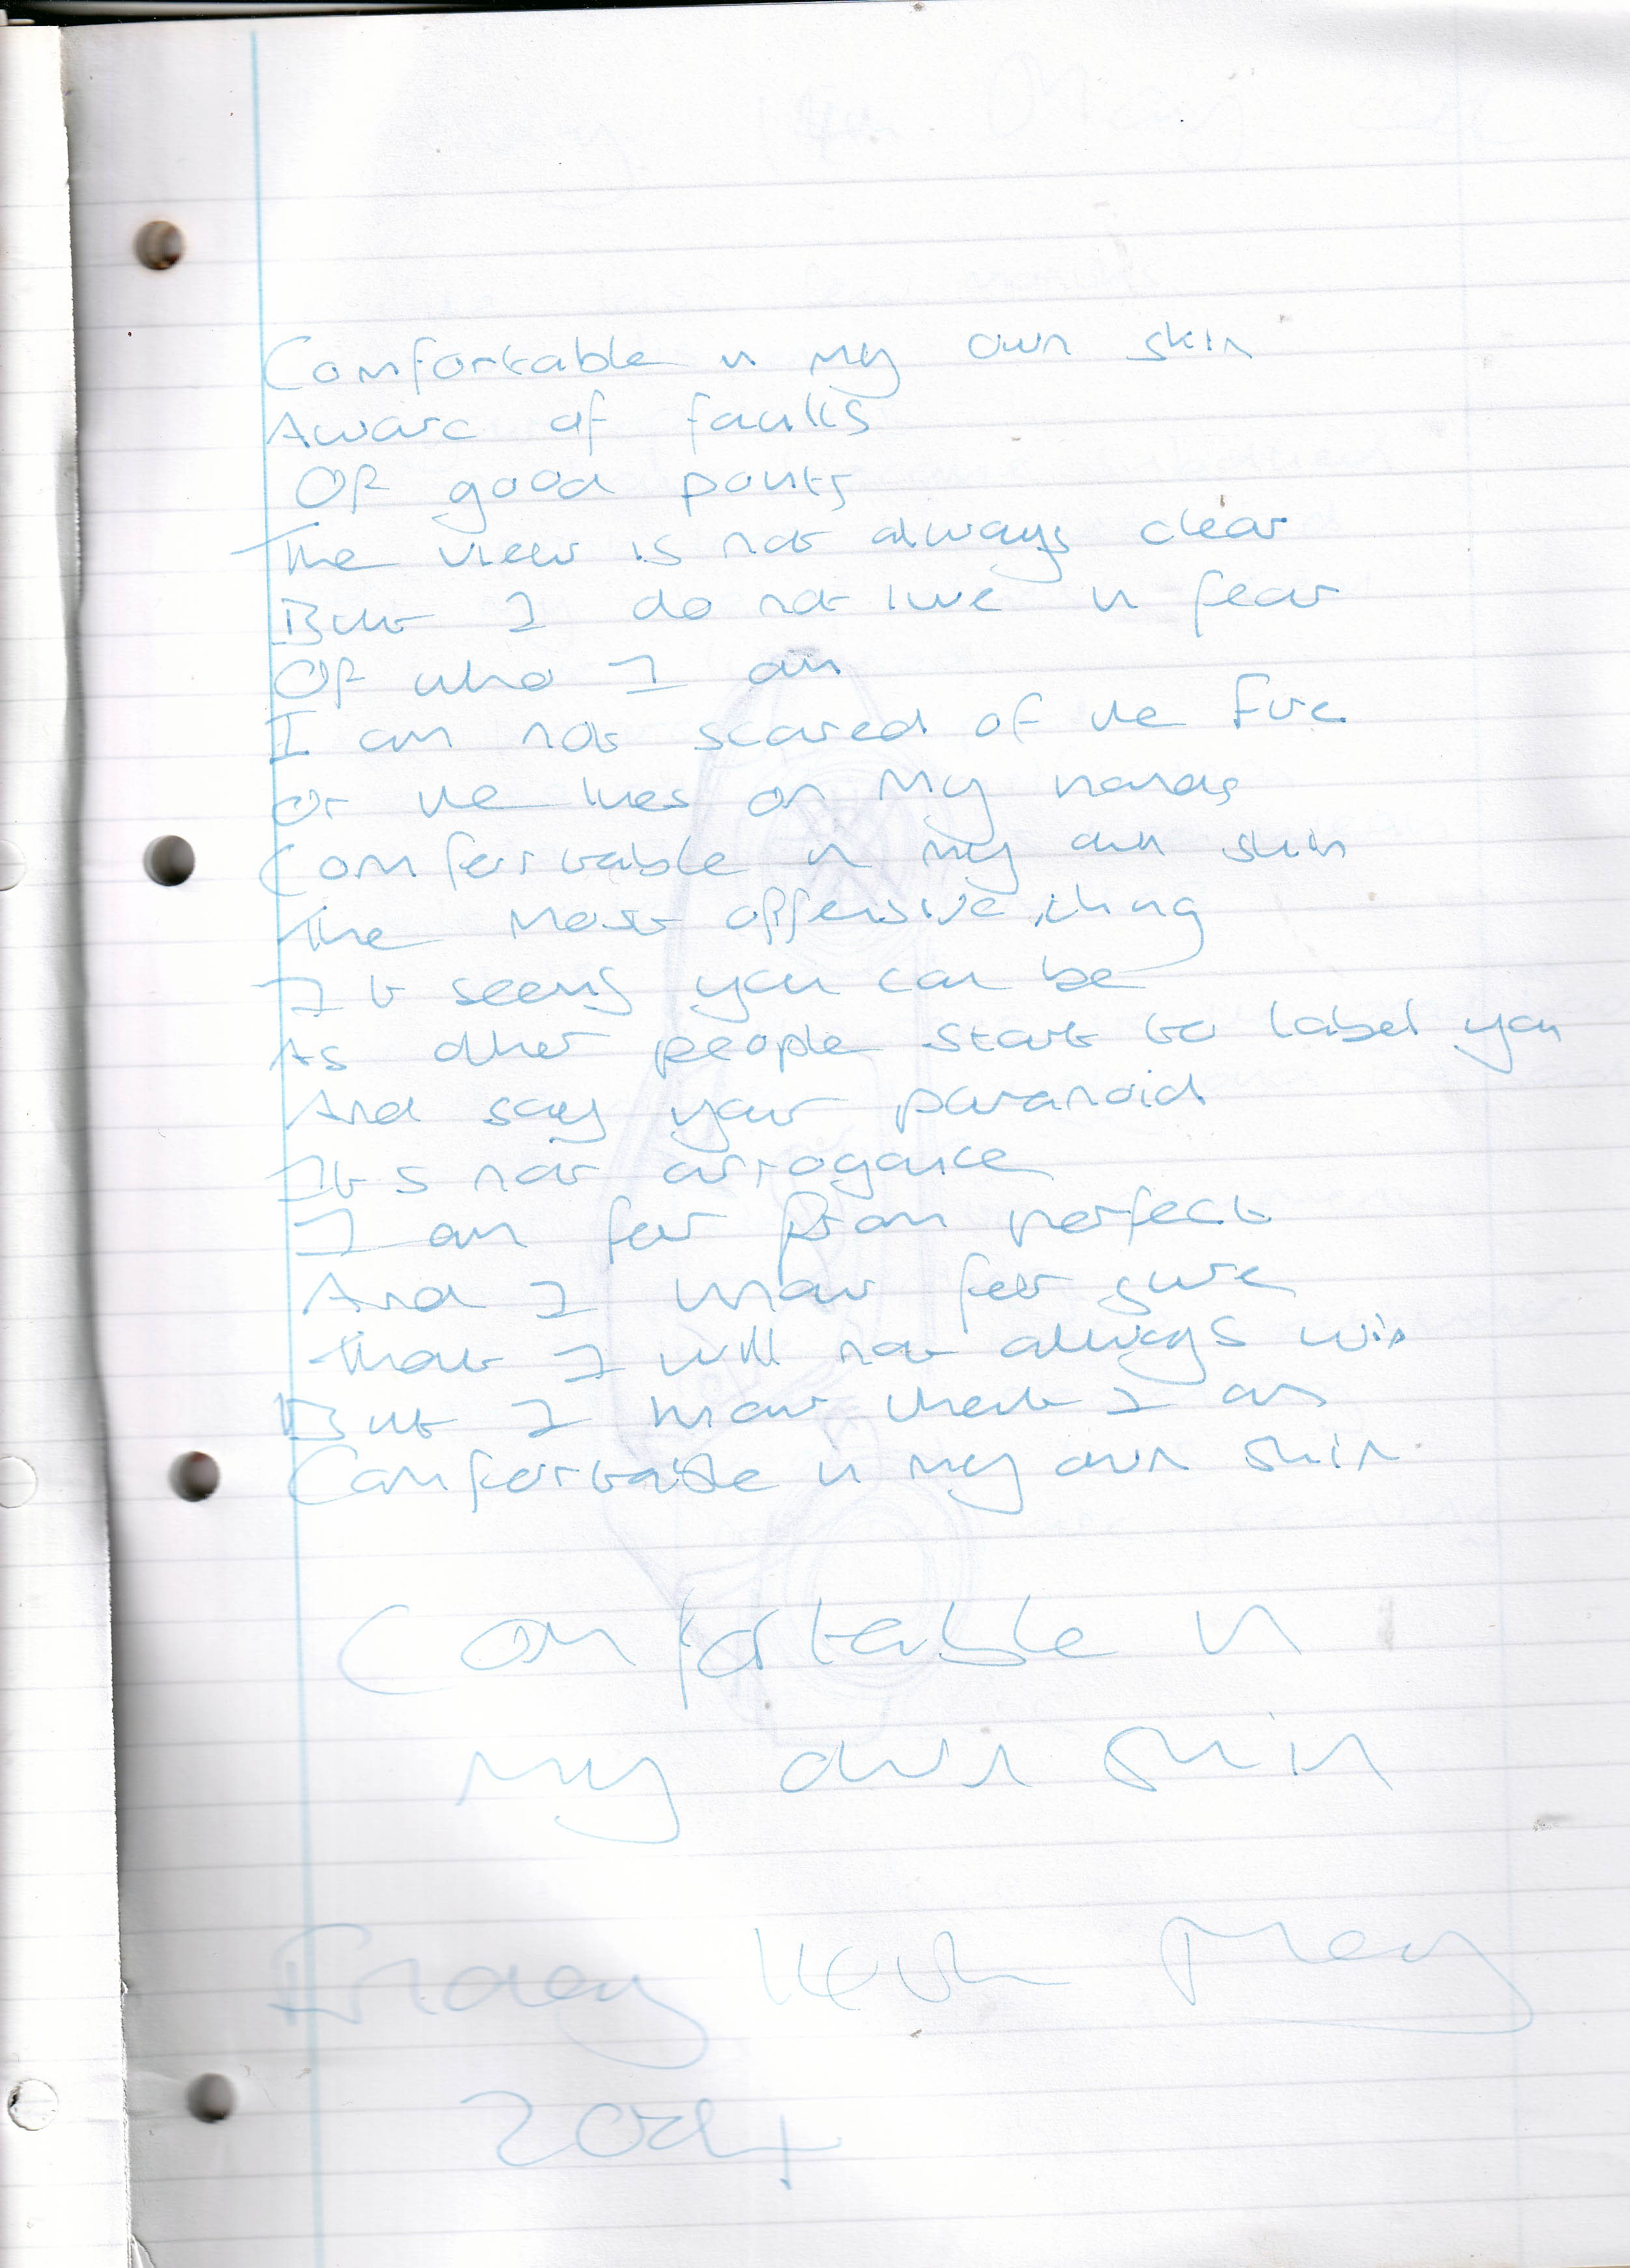 Comfortable in my own skin
Aware of faults
Of good points
The view is not always clear
But I do not live in fear
Of who I am
I am not scared of the fire
Or the lines on my hands
Comfortable in my own skin
The most offensive thing
It seems you can be
As other people start to label you
And say your paranoid
Its not arrogance
I am far from perfect
And I know for sure
That I will not always win
But I know that I am
Comfortable in my own skin
Comfortable in
my own skin
Friday May